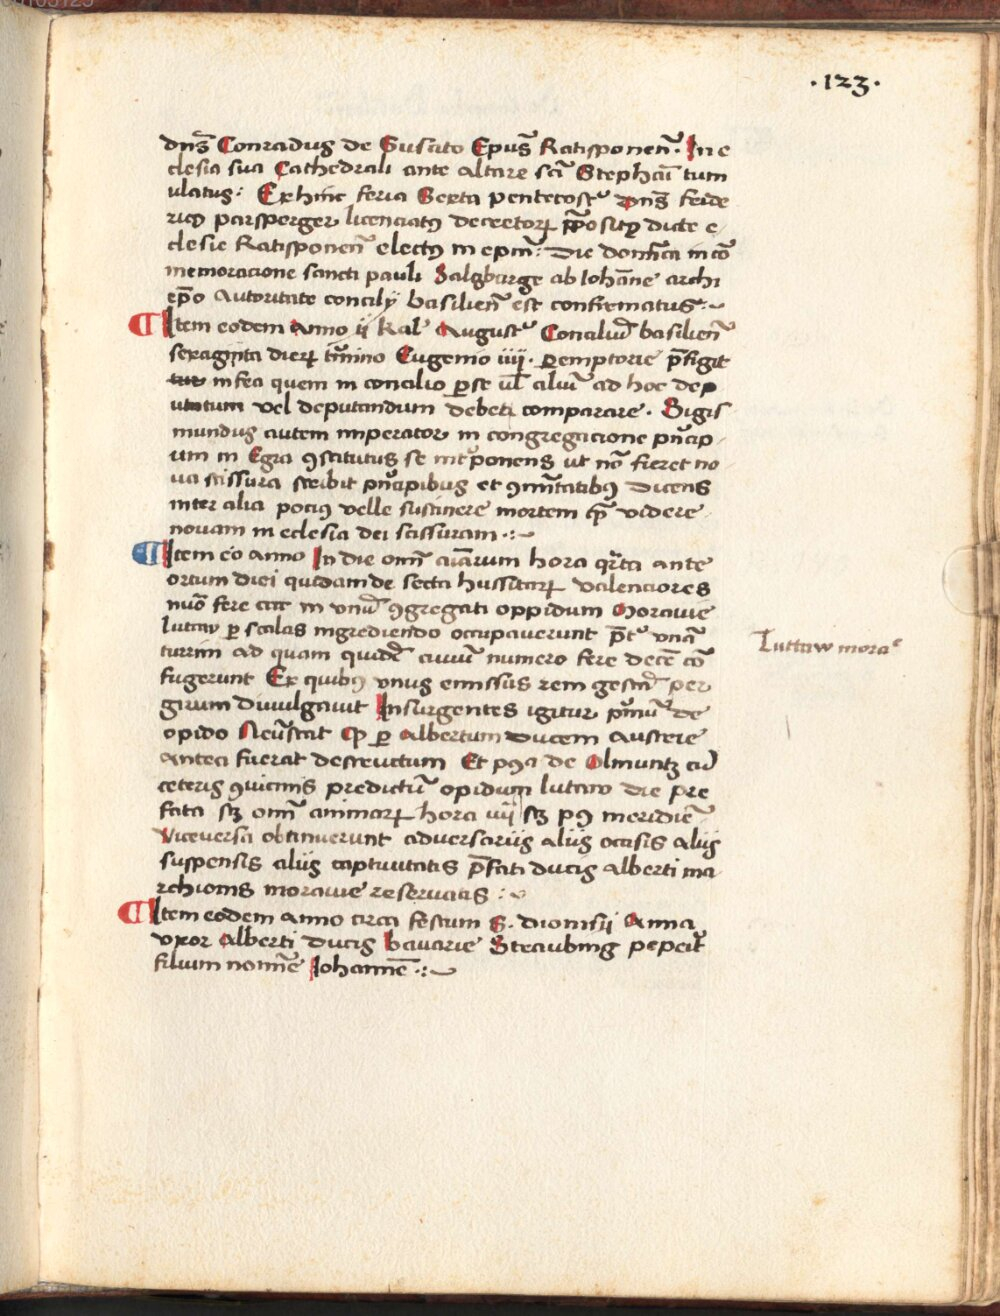 ·123·
dns̄ Conradus de Susato Epūs Ratisponen̄. In e
clesia sua Cathedrali ante altare sc̄i Stephani tum
ulatus: Ex hinc feria Sexta pentecost᷒ dns̄ feide
ricꝯ parsperger licenciatꝯ decretoꝝ p̄positꝯ dicte e
clesie Ratisponen̄ electꝯ in epm̄: Die domīca in cō
memoracione sancti pauli Salczburge ab Iohan̄e archi
ep̄o Autoritate concilij basilien̄ est confirmatus:~
Item eodem Anno ii kal᷒ August᷒ Conciliū basilien̄
sexaginta dieꝝ t̄mino Eugenio iiij. ꝑemptorie p̄figit
infra quem in concilio ꝑ se ul̄ aliū ad hoc dep
utatum vel deputandum debeti comparare. Sigis
mundus autem imperator in congregacione pn̄cip
um in Egra ꝯstitutus se int᷒ponens ut nō fieret no
va scissura scribit pn̄cipibus et ꝯmun̄itatibꝯ dicens
inter alia pociꝯ velle sustinere mortem qꝫ videre
novam in eclesia dei scissuram·:~
Item eo anno In die omn̄ aīarum hora qr̄ta ante
ortum diei quidam de secta hussitaꝝ valenciores
nūo fere in vnū ꝯgregati oppidum Moravie
luttaw ꝑ scalas ingrediendo occupaverunt p̄t᷒ vnā
turrim ad quam quidē civiū numero fere decē cō
fugerunt Ex quibꝯ vnus emissus rem gestā per
girum divulgavit Insurgentes igitur pm̄ū de
opido Neūstat qꝫ ꝑ Albertum ducem Austrie
antea fuerat destructum Et pꝯa de Olmuntz cū
ceteris ꝯvicinis predictū opidum luttaw die pre
fata sꝫ omn̄ animaꝝ hora iiij sꝫ pꝯ meridiē
Viceversa obtinuerunt adversariis aliis occisis aliis
suspensis aliis captivitatis p̄fati ducis alberti ma
rchionis moravie reservatis:~
Luttaw mora᷒
Item eodem anno circa festum S. dionisii Anna
vxor Alberti ducis bavarie Straubing peperit
filium nomīe Iohannē·:~